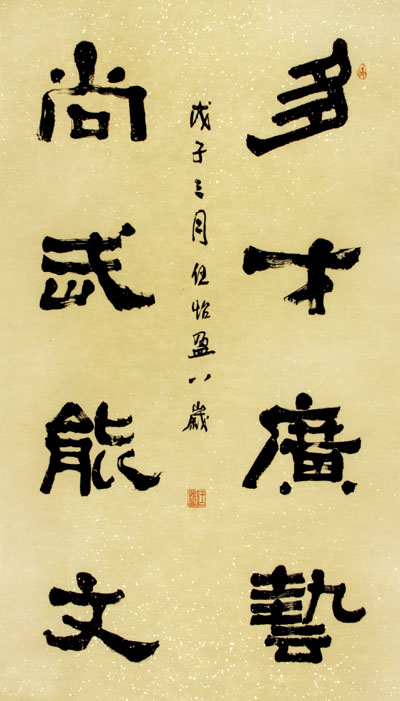 多才廣藝
戊子三月任怡盈八歲
尚武能文